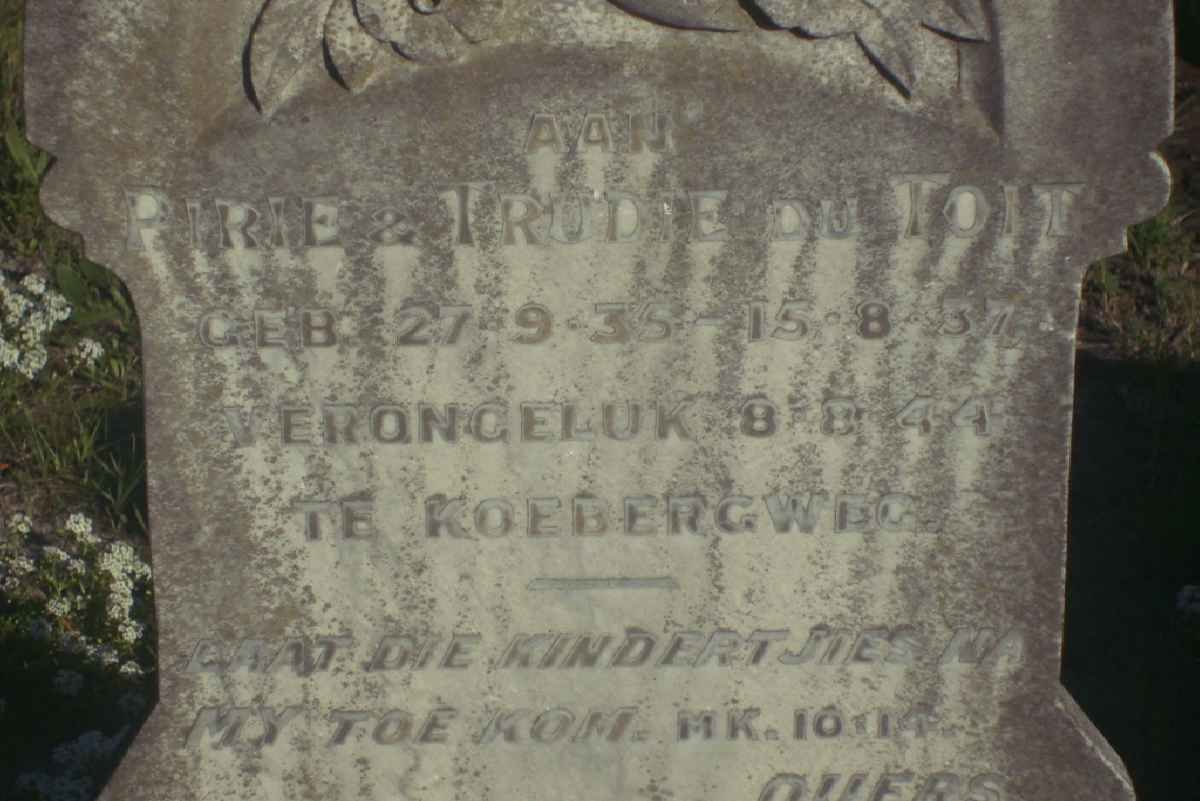 AAN
PIRIE & TRUDIE DU TOIT
GEB. 27·9·35 – 15·8·37
VERONGELUK 8·8·44
TE KOEBERGWEG.
LAAT DIE KINDERTJIES NA
MY TOE KOM. MK. 10:14.
OUERS